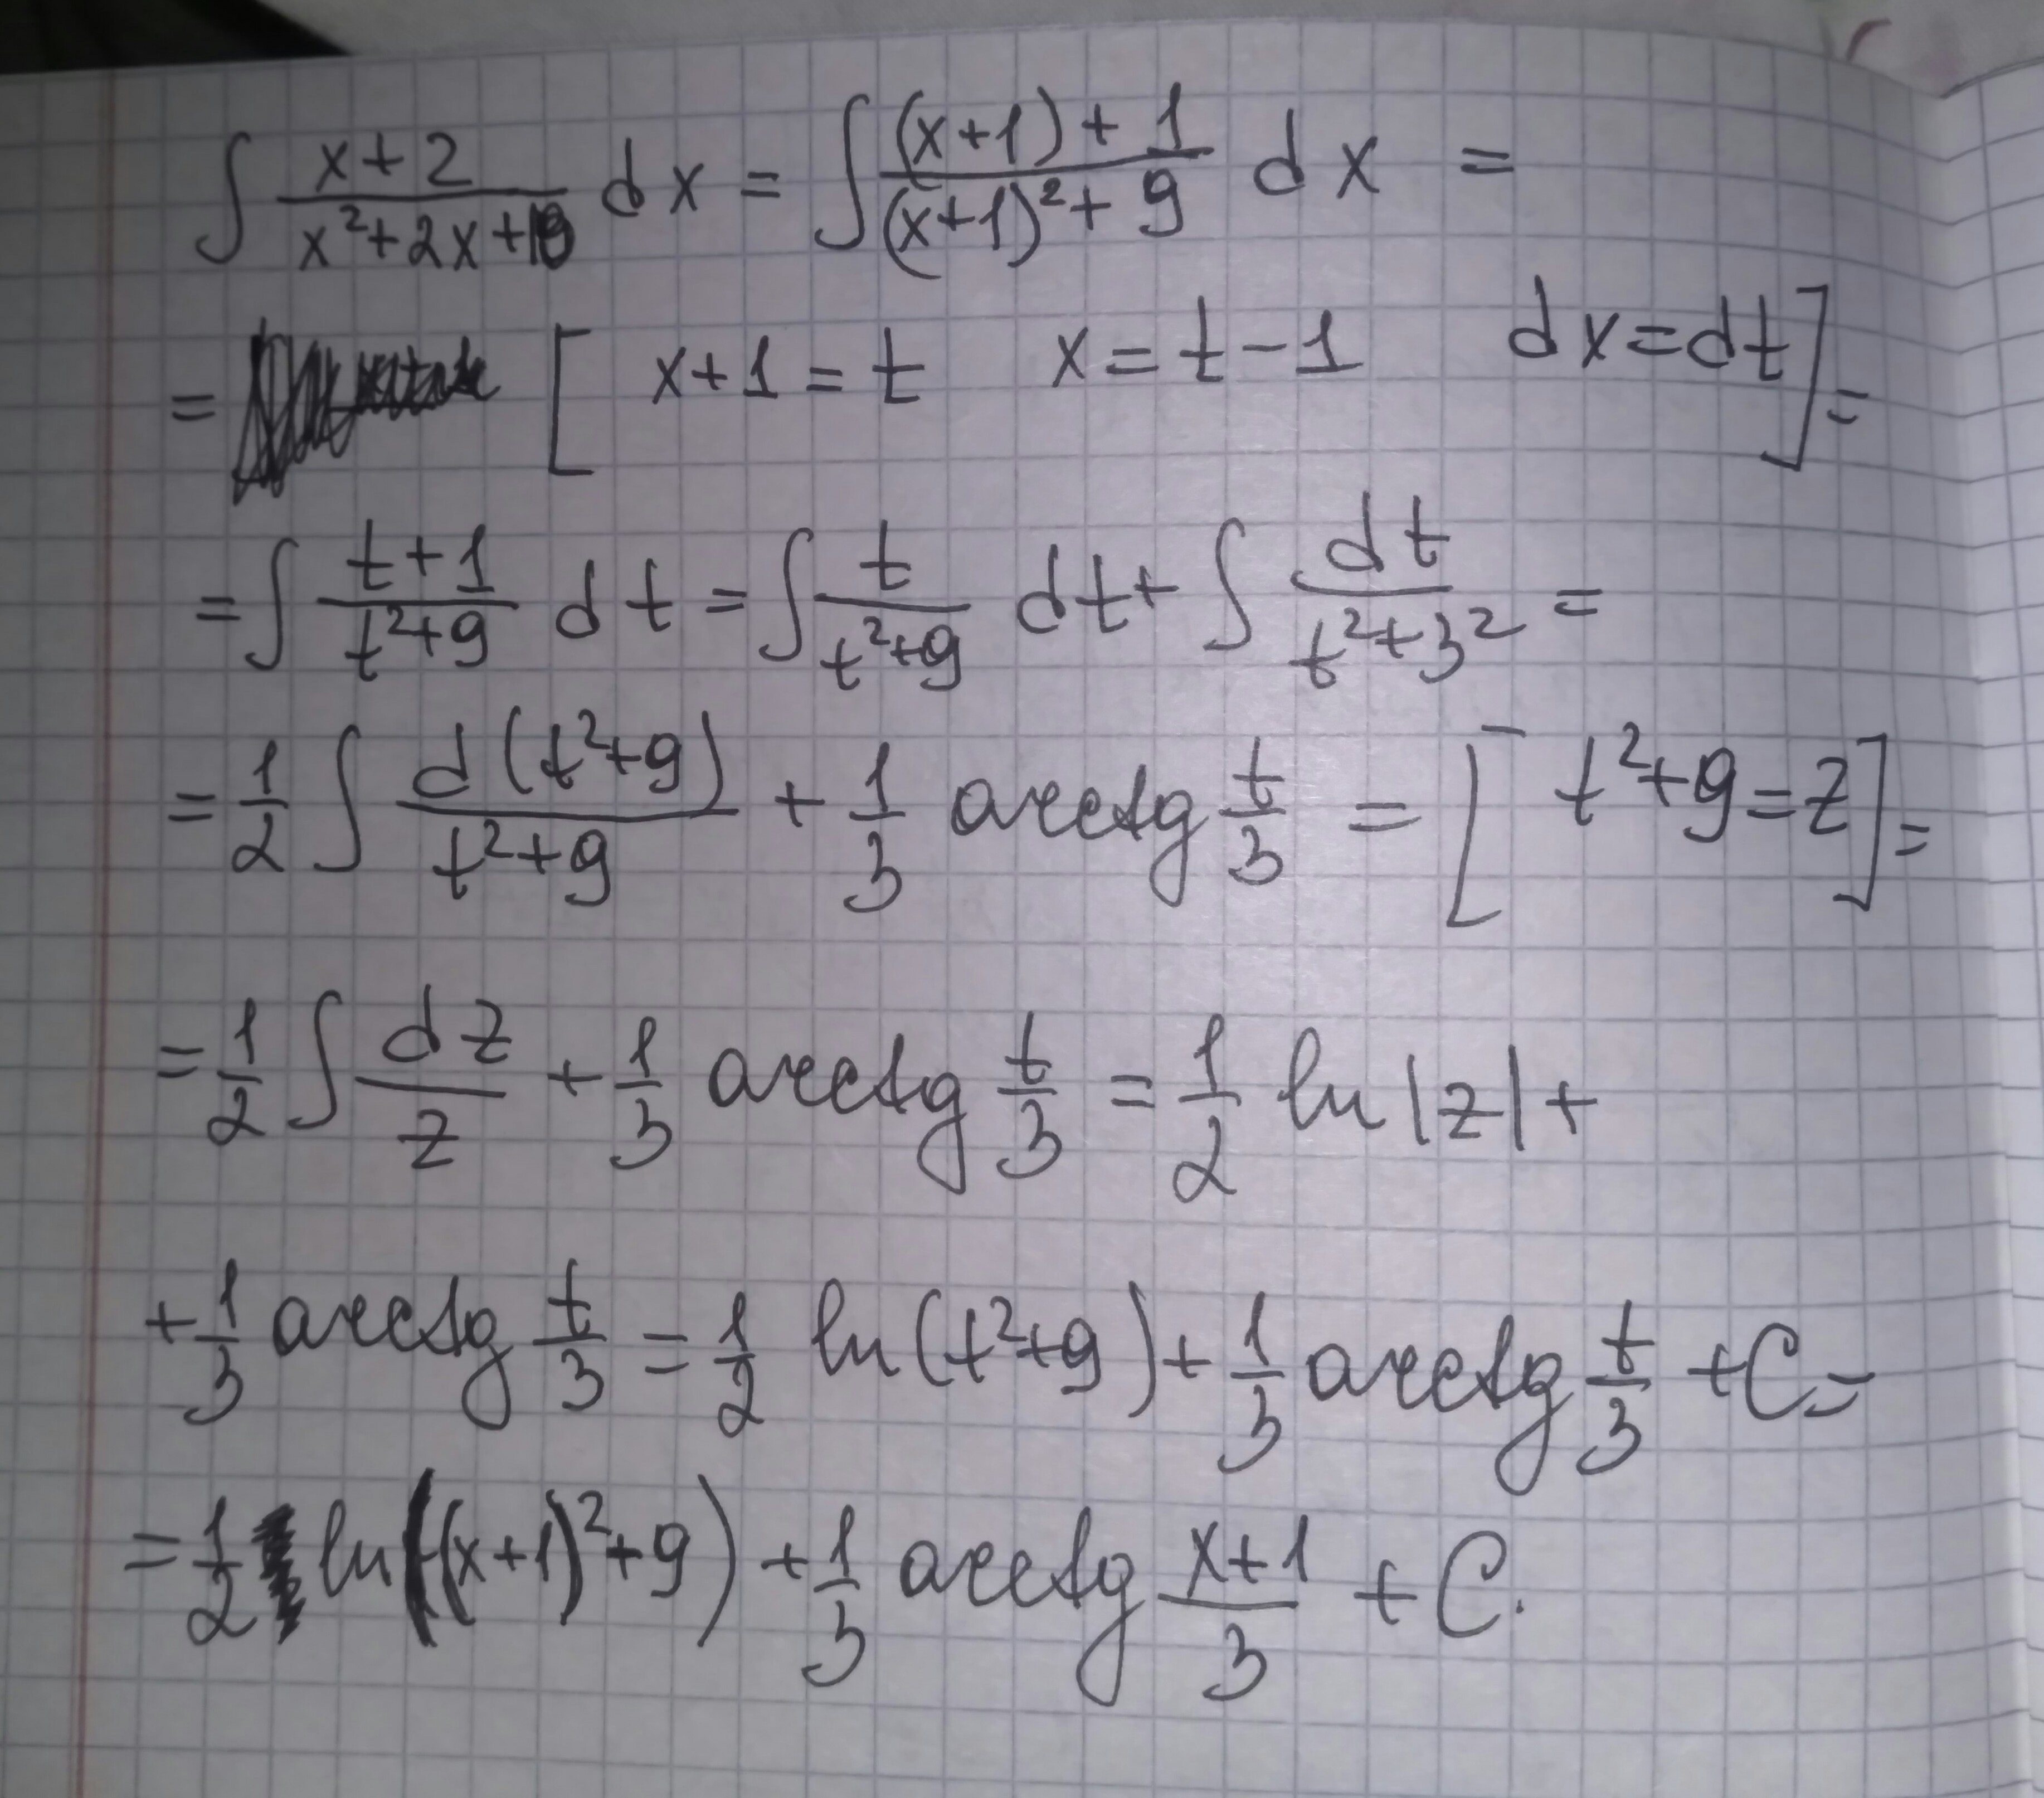 ∫ (x+2)/(x²+2x+10) dx = ∫ ((x+1)+1)/((x+1)²+9) dx =
= [ x+1=t x=t-1 dx=dt ] =
= ∫ (t+1)/(t²+9) dt = ∫ t/(t²+9) dt + ∫ dt/(t²+3²) =
= 1/2 ∫ d(t²+9)/(t²+9) + 1/3 arctg t/3 = [ t²+9=z ] =
= 1/2 ∫ dz/z + 1/3 arctg t/3 = 1/2 ln|z| +
+ 1/3 arctg t/3 = 1/2 ln(t²+9) + 1/3 arctg t/3 + C =
= 1/2 ln((x+1)²+9) + 1/3 arctg (x+1)/3 + C.